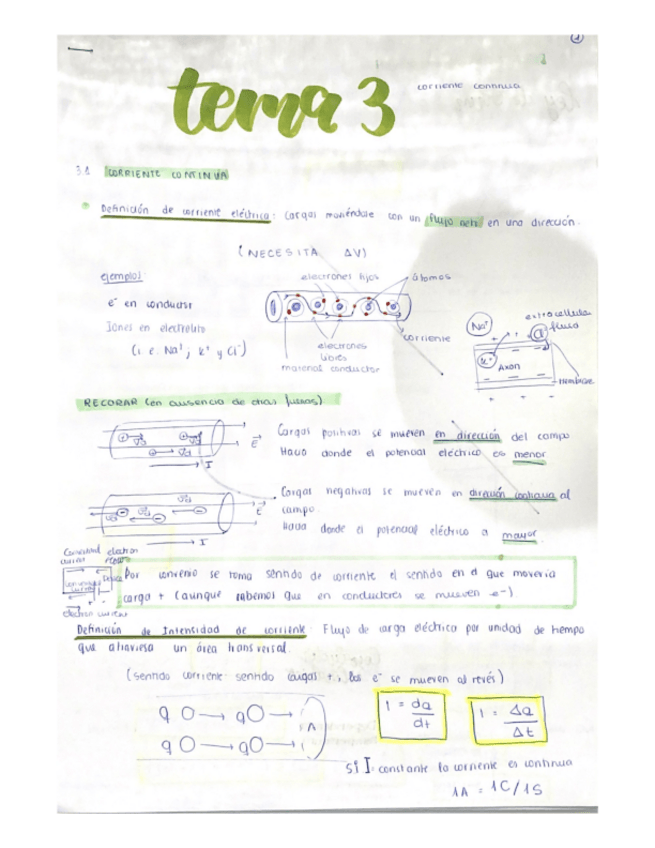 tema 3
corriente continua
3.1 CORRIENTE CONTINUA
Definición de corriente eléctrica: Cargas moviéndose con un flujo neto en una dirección.
(NECESITA ΔV)
ejemplos:
e⁻ en conductor
Iones en electrolito
(i.e. Na⁺; K⁺ y Cl⁻)
electrones fijos
átomos
electrones
libres
material conductor
corriente
Na⁺
extracellular
fluid
Cl⁻
K⁺
Axon
membrane
RECORAR (en ausencia de otras fuerzas)
Cargas positivas se mueven en dirección del campo
Hacia donde el potencial eléctrico es menor
E
I
Cargas negativas se mueven en dirección contraria al
campo.
Hacia donde el potencial eléctrico a mayor
E
I
electron
Por convenio se toma sentido de corriente el sentido en el que movería
carga + (aunque sabemos que en conductores se mueven e⁻)
electron current
Definición de Intensidad de corriente: Flujo de carga eléctrica por unidad de tiempo
que atraviesa un área transversal.
(sentido corriente: sentido cargas +, los e⁻ se mueven al revés)
q q A
q q
I = dq/dt
I = Δq/Δt
Si I = constante la corriente es continua
1A = 1C/1S